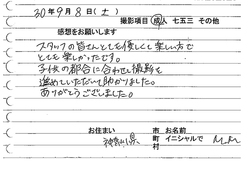 30年9月8日(土) 撮影項目 成人 七五三 その他
感想をお願いします
スタッフの皆さんとても優しくて楽しい方で
とても楽しかったです。
子供の都合に合わせて撮影を
進めていただいて助かりました。
ありがとうございました。
お住まい 市 お名前
神奈川県 町 イニシャルで M.M
村